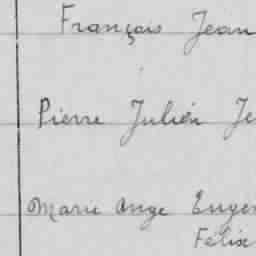 François Jean
Pierre Julien Je
Marie Ange Eugen
Félix